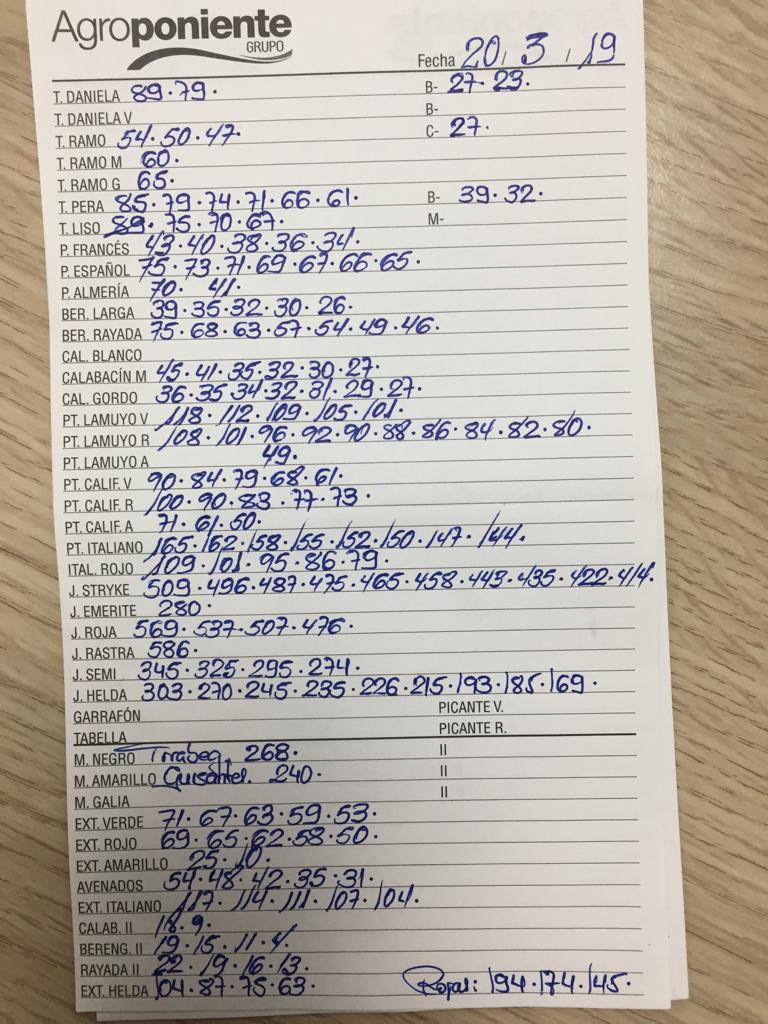 Agroponiente
GRUPO
Fecha 20/ 3 / 19
T. DANIELA 89·79· B- 27·23·
T. DANIELA V B-
T. RAMO 54·50·47· C- 27·
T. RAMO M 60·
T. RAMO G 65·
T. PERA 85·79·74·71·66·61· B- 39·32·
T. LISO 89·75·70·67· M-
P. FRANCÉS 43·40·38·36·34·
P. ESPAÑOL 75·73·71·69·67·66·65·
P. ALMERÍA 70· 41·
BER. LARGA 39·35·32·30·26·
BER. RAYADA 75·68·63·57·54·49·46·
CAL. BLANCO
CALABACÍN M 45·41·35·32·30·27·
CAL. GORDO 36·35·34·32·31·29·27·
PT. LAMUYO V 118·112·109·105·101·
PT. LAMUYO R 108·101·96·92·90·88·86·84·82·80·
PT. LAMUYO A 49·
PT. CALIF. V 90·84·79·68·61·
PT. CALIF. R 100·90·83·77·73·
PT. CALIF. A 71·61·50·
PT. ITALIANO 165·162·158·155·152·150·147·144·
ITAL. ROJO 109·101·95·86·79·
J. STRYKE 509·496·487·475·465·458·443·435·422·414·
J. EMERITE 280·
J. ROJA 569·537·507·476·
J. RASTRA 586·
J. SEMI 345·325·295·274·
J. HELDA 303·270·245·235·226·215·193·185·169·
GARRAFÓN PICANTE V.
TABELLA PICANTE R.
M. NEGRO Tirabeq. 268· II
M. AMARILLO Guisantes. 240· II
M. GALIA II
EXT. VERDE 71·67·63·59·53·
EXT. ROJO 69·65·62·58·50·
EXT. AMARILLO 25·10·
AVENADOS 54·48·42·35·31·
EXT. ITALIANO 117·114·111·107·104·
CALAB. II 18·9·
BERENG. II 19·15·11·4·
RAYADA II 22·19·16·13·
EXT. HELDA 104·87·75·63· Rojas: 194·174·145·